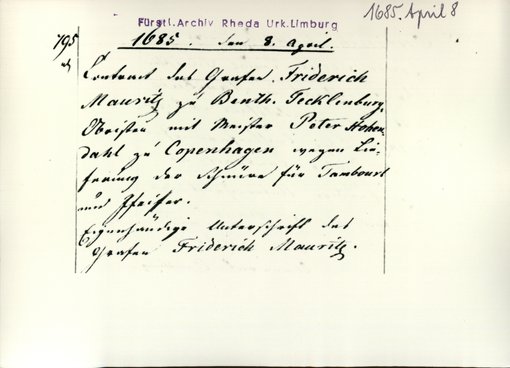 Fürstl. Archiv Rheda Urk. Limburg
1685. April 8
795
1685. den 8. April.
Contract des Grafen Friderich
Mauritz zu Benth. Tecklenburg,
Obristen mit Meister Peter Hohen-
dahl zu Copenhagen wegen Lie-
ferung der Schnüre für Tambours
und Pfeifer.
Eigenhändige Unterschrift des
Grafen Friderich Mauritz.